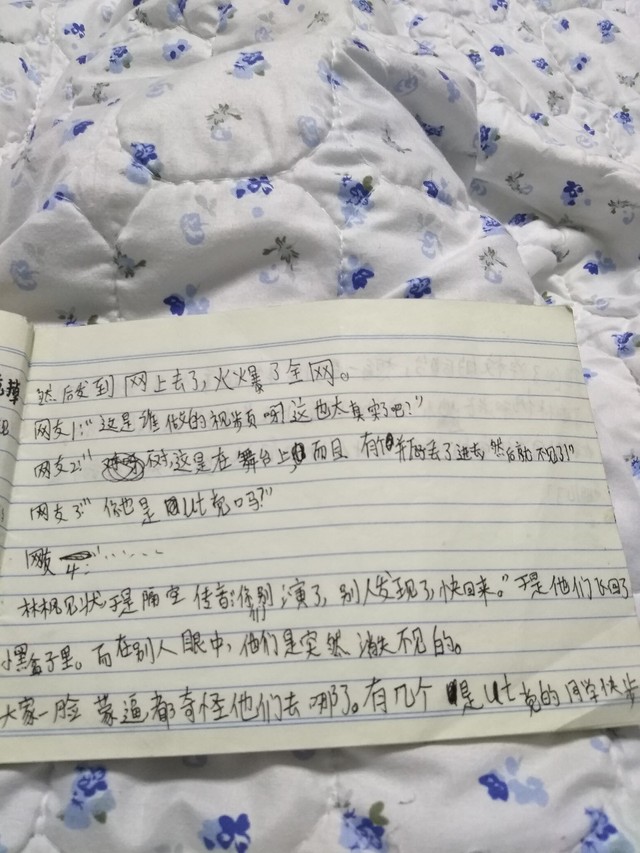 然后发到网上去了,火爆了全网。
网友1:"这是谁做的视频呀!这也太真实了吧?"
网友2:" 不对,这是在舞台上 而且 有 丢了进去,然后就不见了!"
网友3"你也是ut党吗?"
网友4:"……
林枫见状,于是隔空传音:"你们别演了,别人发现了,快回来。"于是他们飞回了
小黑盒子里。而在别人眼中,他们是突然消失不见的。
大家一脸蒙逼,都奇怪他们去哪了。有几个是ut党的同学快步